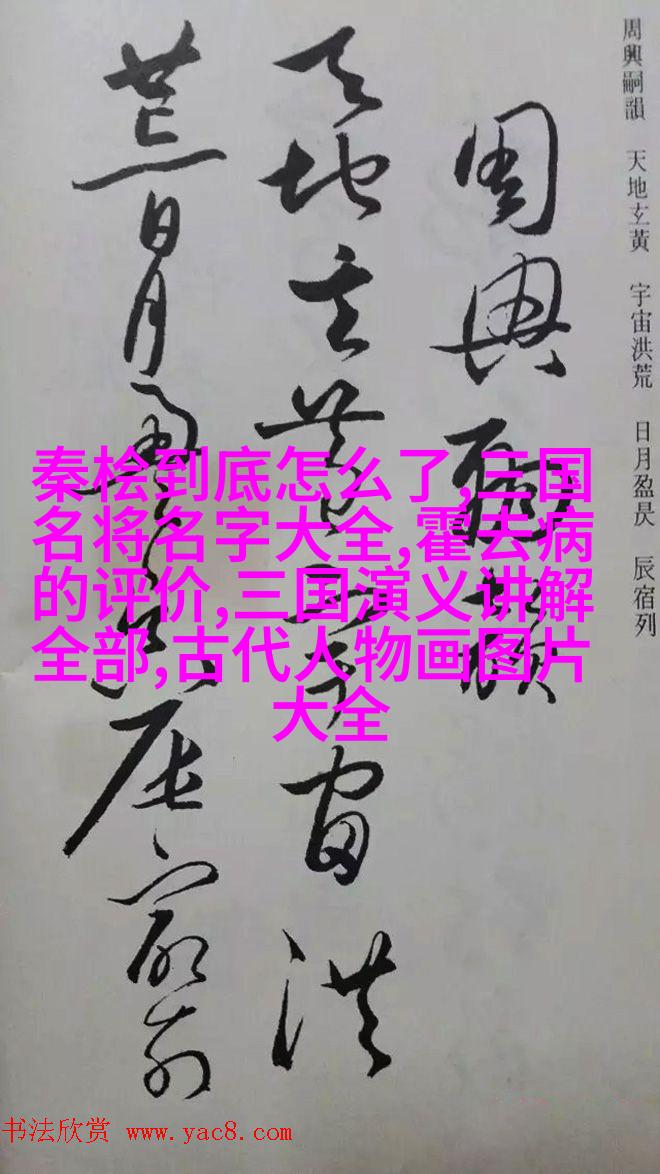 周興嗣韻 天地玄黃 宇宙洪荒 日月盈昃 辰宿列
周興嗣韻
天地玄黃宇宙洪
荒日月盈昃辰宿列
秦桧到底怎么了,三国
名将名字大全,霍去病
的评价,三国演义讲解
全部,古代人物画图片
大全
书法欣赏 www.yac8.com